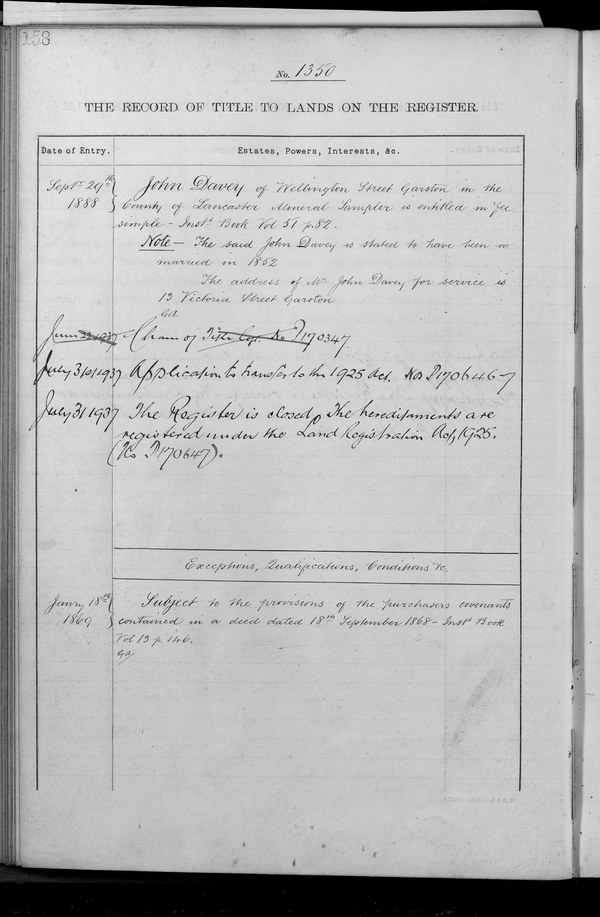 158
No. 1350
THE RECORD OF TITLE TO LANDS ON THE REGISTER.
Date of Entry.
Estates, Powers, Interests, &c.
Septr 29th
1888
John Davey of Wellington Street Garston in the
County of Lancaster Mineral Sampler is entitled in fee
simple - Instt Book Vol 51 p. 82.
Note - The said John Davey is stated to have been
married in 1852
The address of Mr John Davey for service is
13 Victoria Street Garston
GA
June 1937 of Title No P170347
July 31st 1937 Application to transfer to the 1925 Act. Nos P170646-7
July 31 1937 The Register is closed, The hereditaments are
registered under the Land Registration Act, 1925.
(No P170647).
Exceptions, Qualifications, Conditions &c.
Janry 18th
1869
Subject to the provisions of the purchasers covenants
contained in a deed dated 18th September 1868 - Instt Book
Vol 13 p. 146.
GA